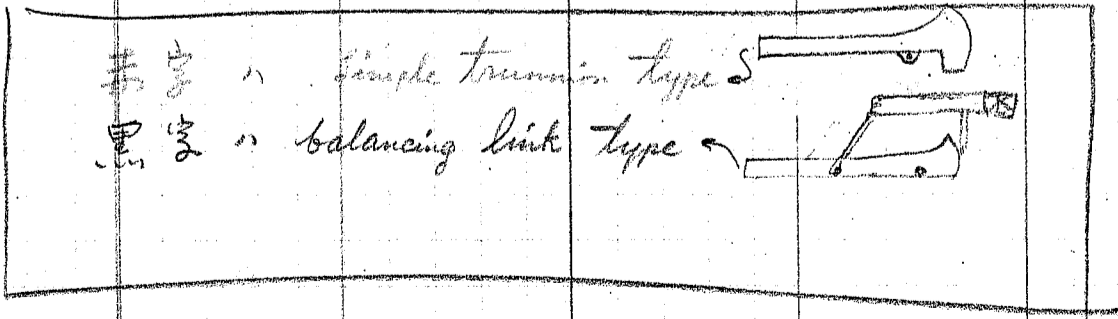 赤字ハ simple trunnion type
黒字ハ balancing link type